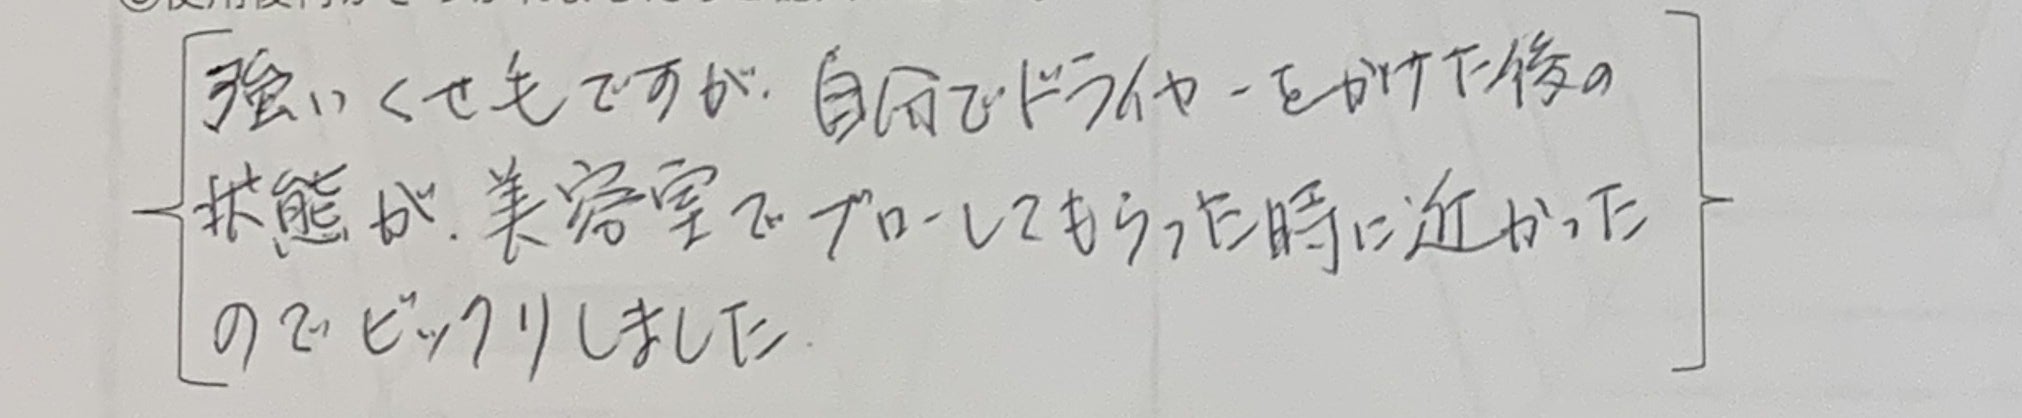 強いくせ毛ですが、自分でドライヤーをかけた後の
状態が、美容室でブローしてもらった時に近かった
のでビックリしました.